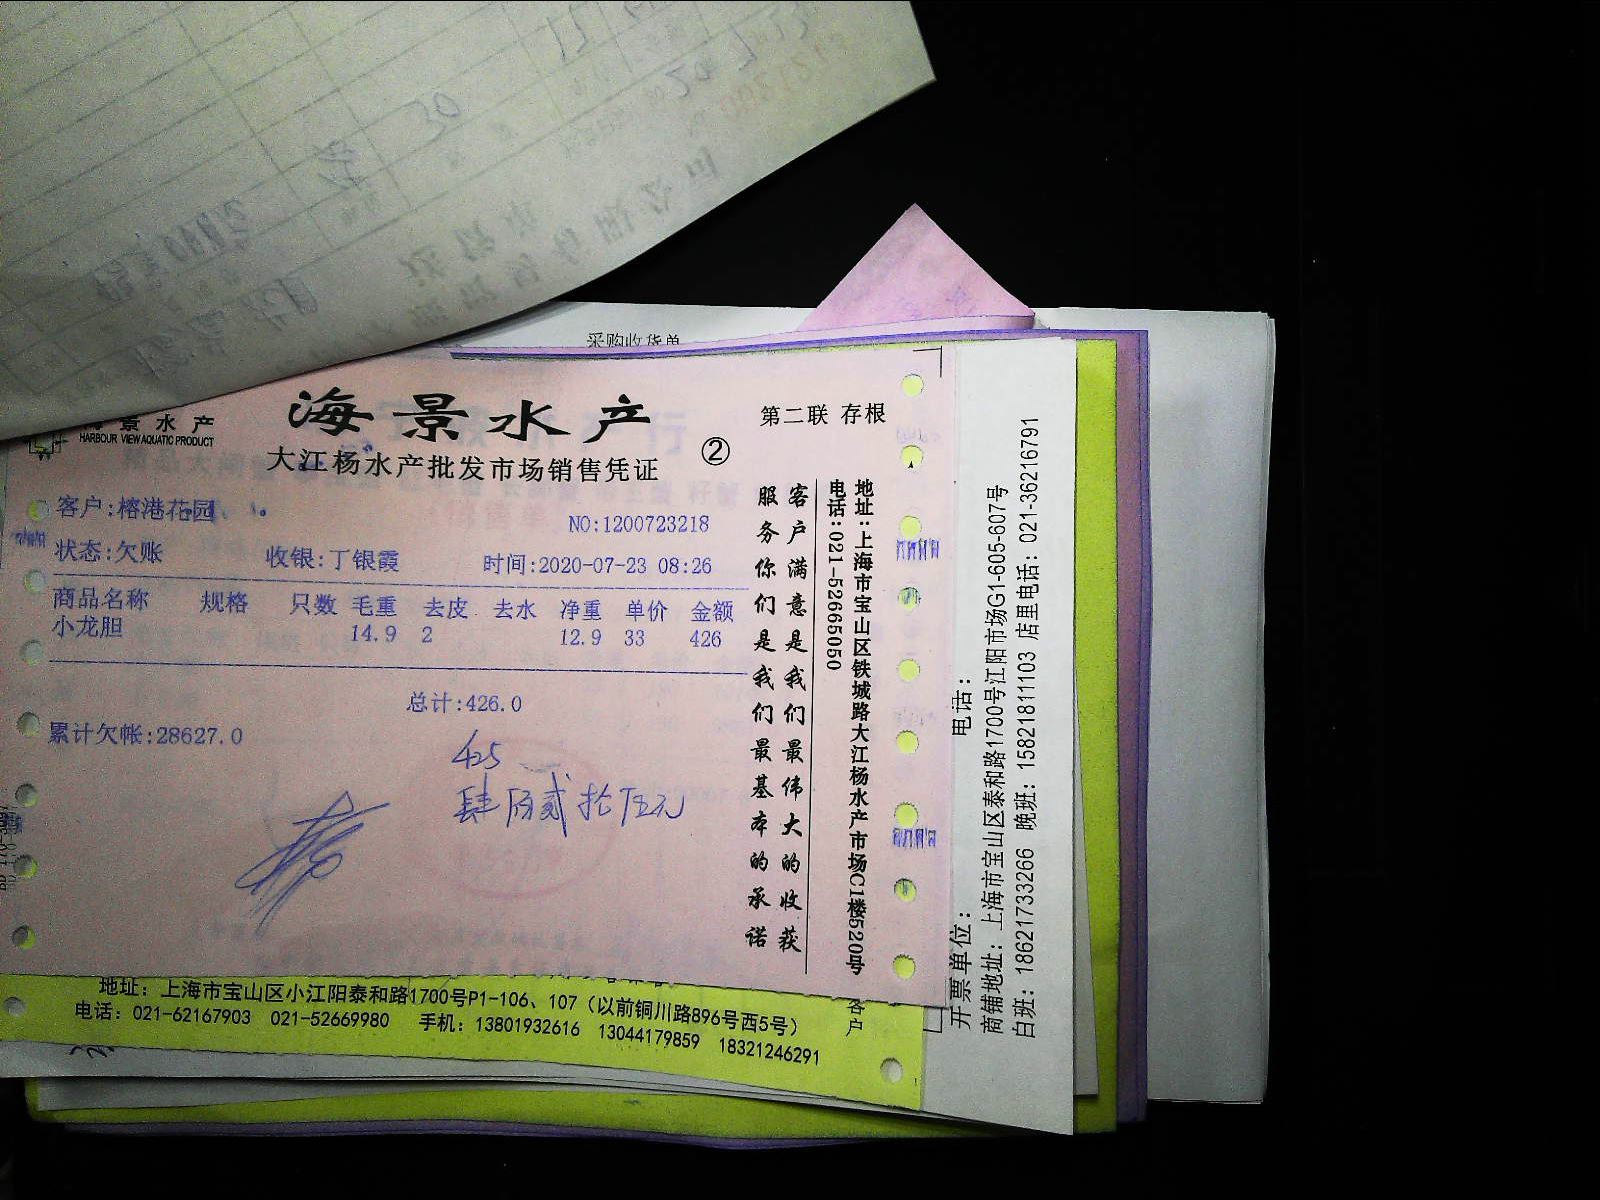 采购收货单
海景水产
景水产
HARBOUR VIEW AQUATIC PRODUCT
大江杨水产批发市场销售凭证
②
第二联 存根
客户:榕港花园
NO:1200723218
状态:欠账 收银:丁银霞 时间:2020-07-23 08:26
商品名称 规格 只数 毛重 去皮 去水 净重 单价 金额
小龙胆 14.9 2 12.9 33 426
总计:426.0
累计欠帐:28627.0
425
肆佰贰拾伍元
客户满意是我们最伟大的收获
服务你们是我们最基本的承诺
地址:上海市宝山区铁城路大江杨水产市场C1楼520号
电话:021-52665050
地址：上海市宝山区小江阳泰和路1700号P1-106、107（以前铜川路896号西5号）
电话：021-62167903 021-52669980 手机：13801932616 13044179859 18321246291
客户
开票单位： 电话：
商铺地址：上海市宝山区泰和路1700号江阳市场G1-605-607号
白班：18621733266 晚班：15821811103 店里电话：021-36216791